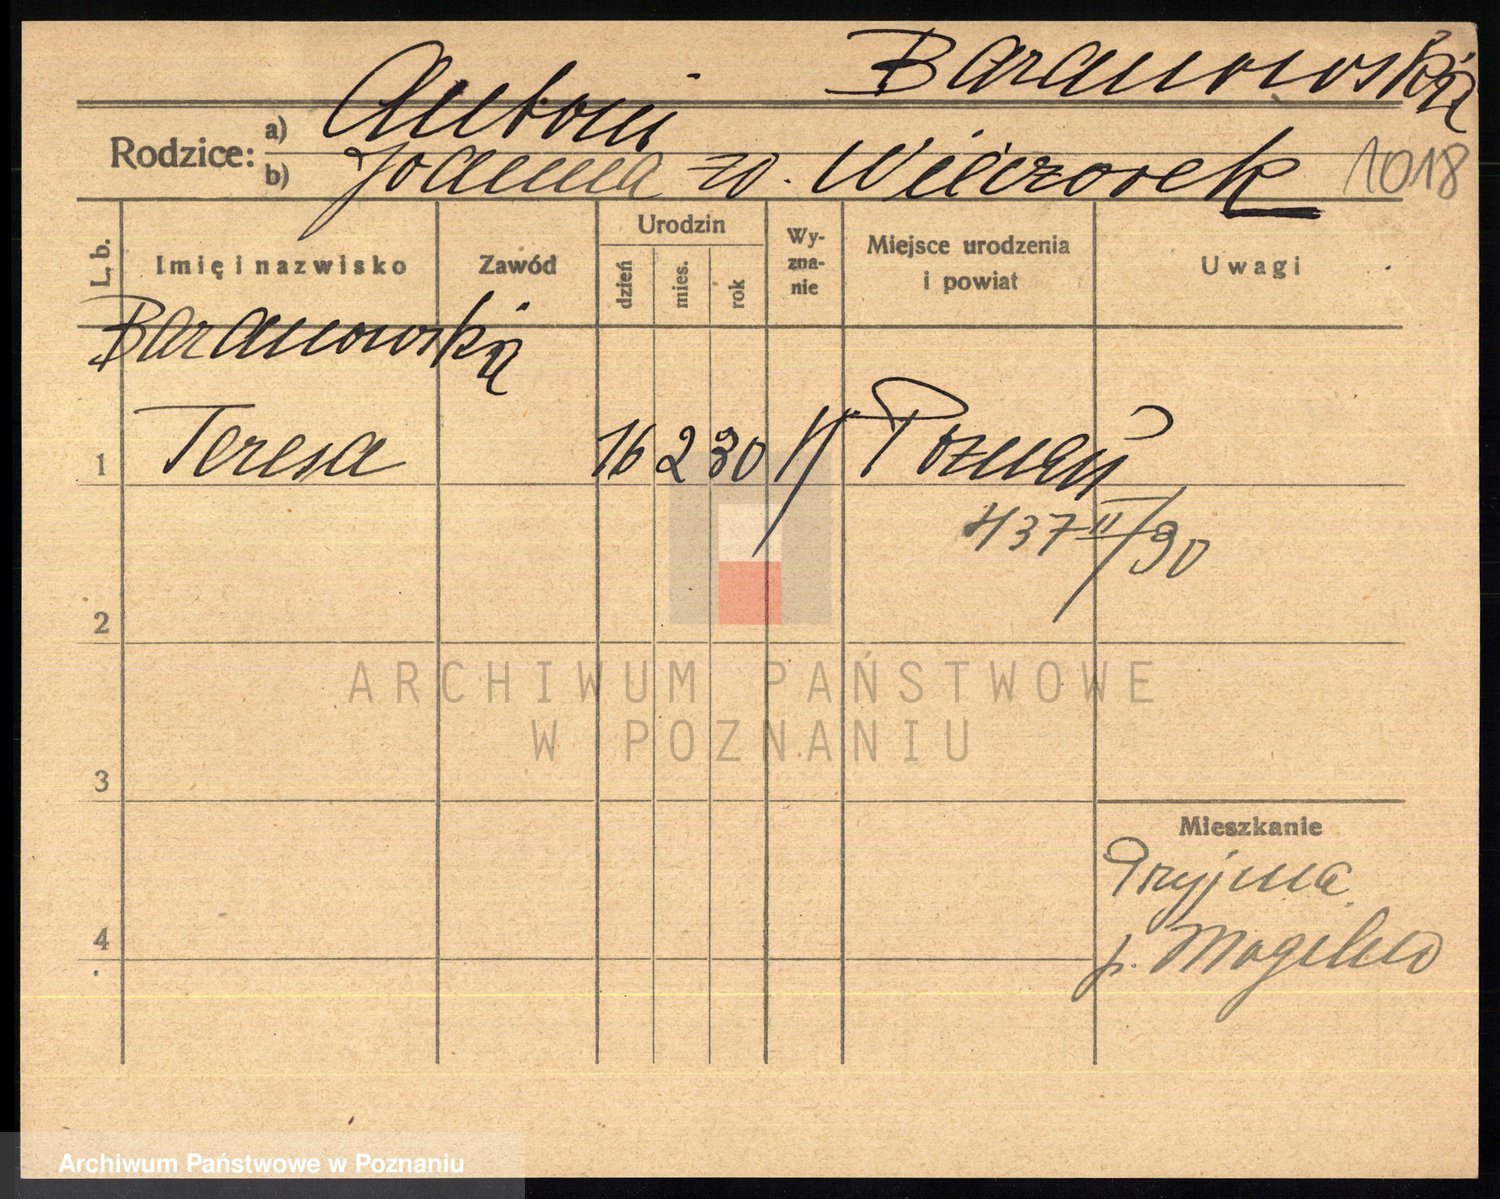 Baranowski
Rodzice: a) Antoni
b) Joanna zd. Wieczorek 1018
L. b. Imię i nazwisko Zawód Urodzin dzień mies. rok Wy-zna-nie Miejsce urodzenia i powiat Uwagi
Baranowski
1 Teresa 16 2 30 Poznań
437 II/30
2
3
Mieszkanie
4 p. Mogilno
ARCHIWUM PAŃSTWOWE
W POZNANIU
Archiwum Państwowe w Poznaniu